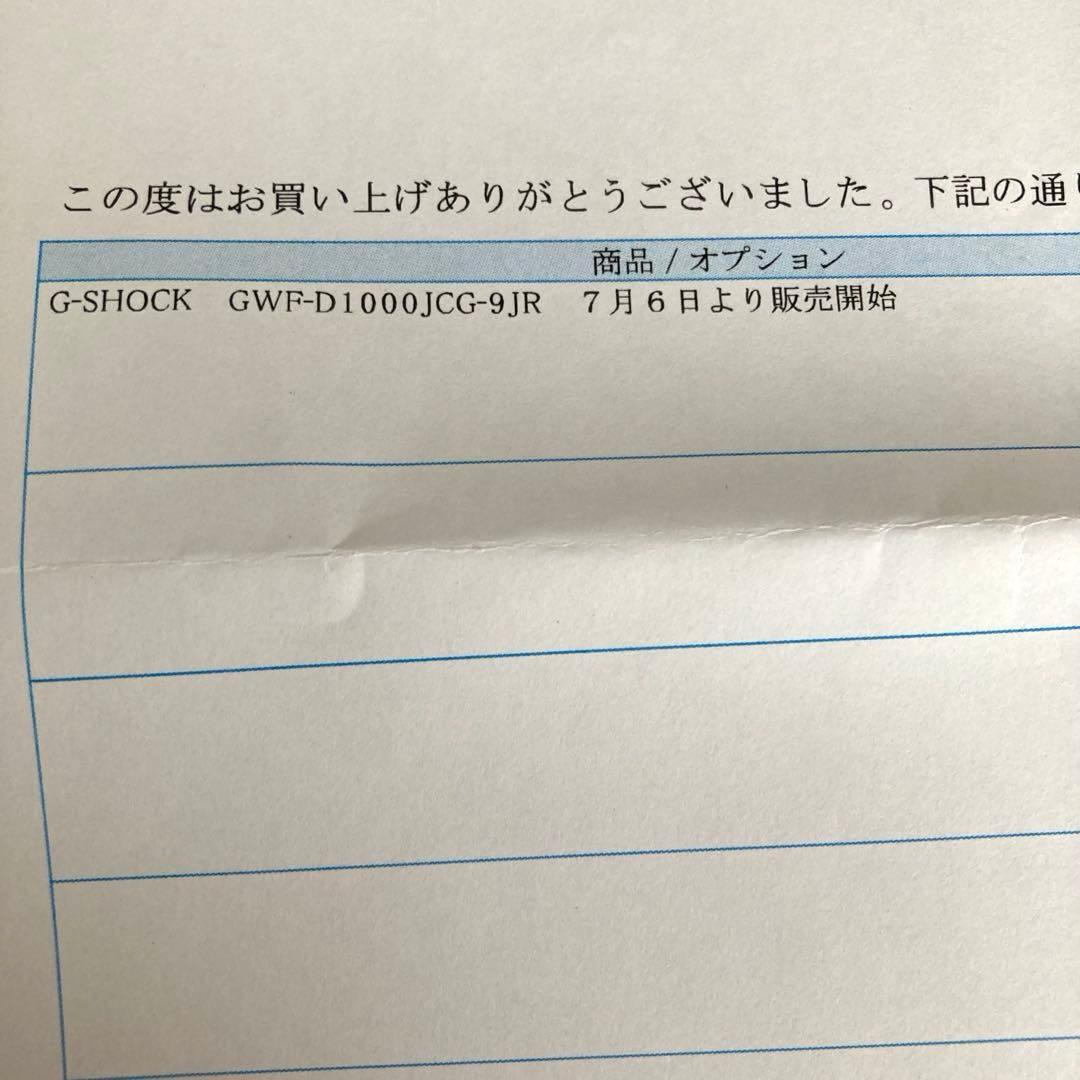 この度はお買い上げありがとうございました。下記の通り
商品 / オプション
G-SHOCK　GWF-D1000JCG-9JR　７月６日より販売開始